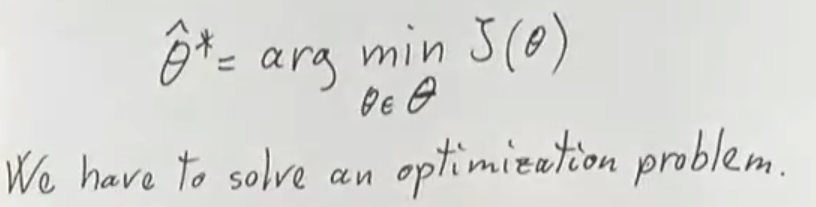 θ̂* = arg min J(θ)
θ∈Θ
We have to solve an optimization problem.